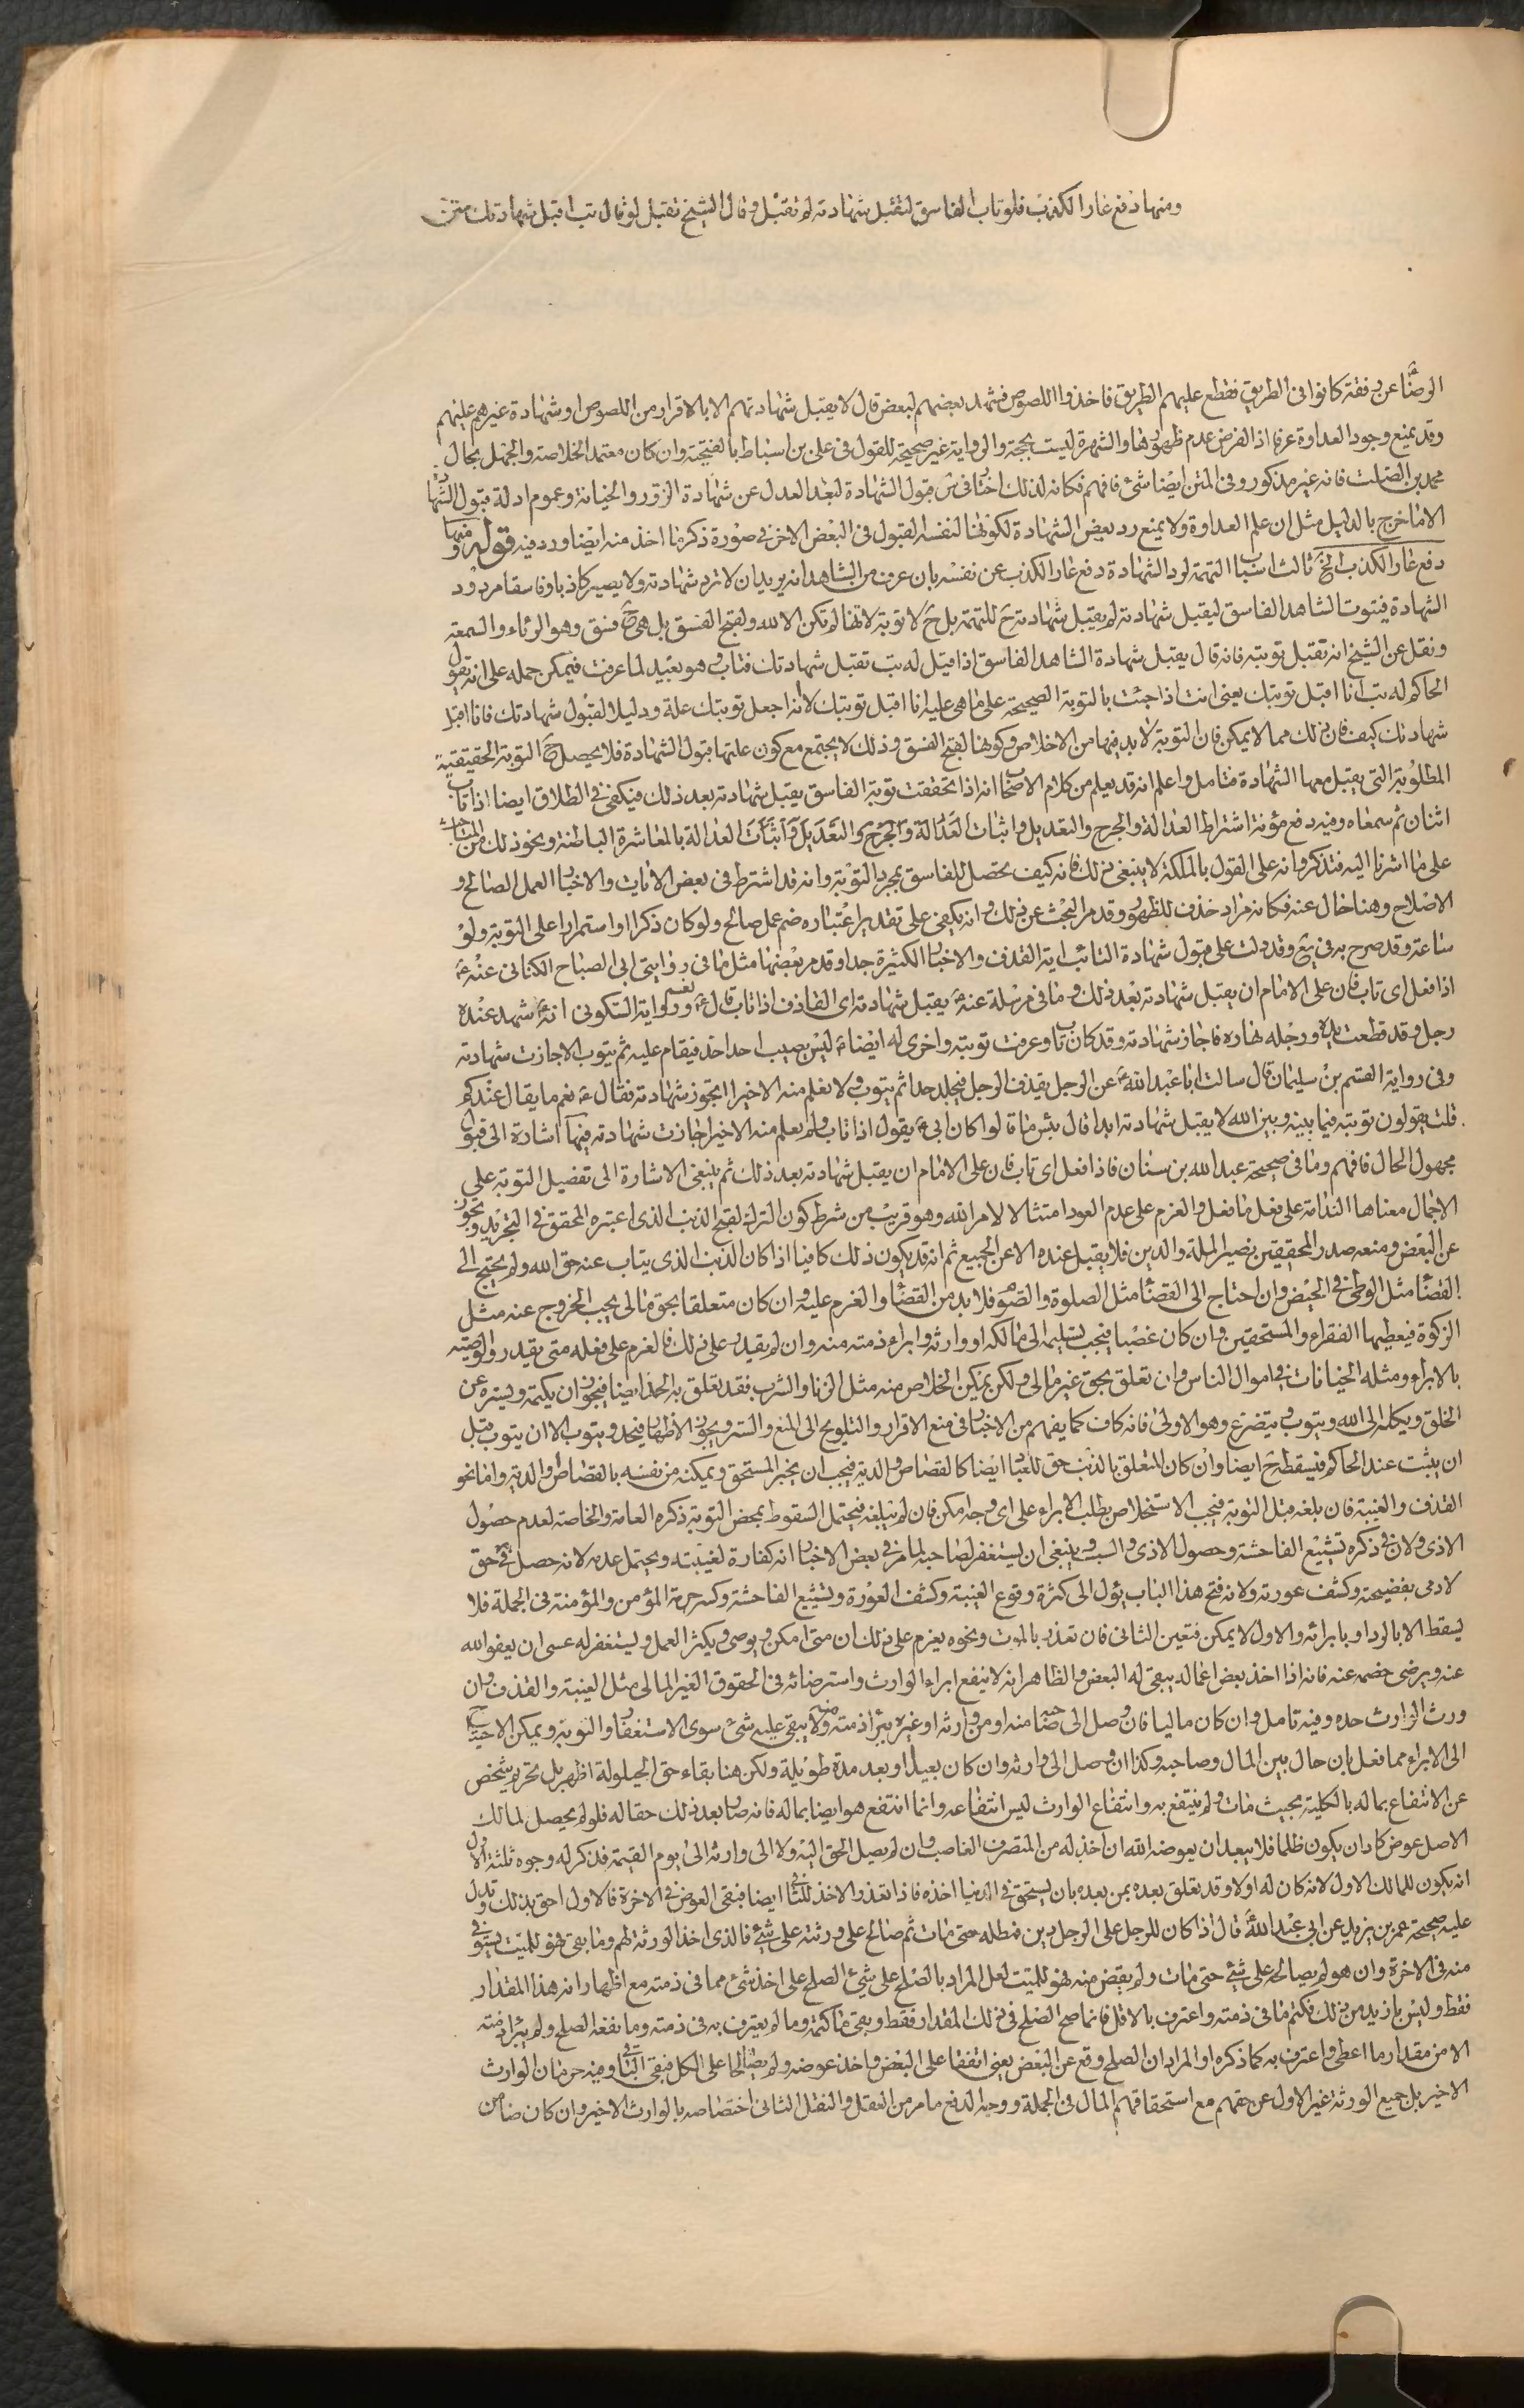 ومنها دفع عار الكذب فلو تاب الفاسق لتقبل شهادته لم تقبل وقال الشيخ تقبل لو قال تب اقبل شهادتك متن
الرضا عن رفقة كانوا في الطريق فقطع عليهم الطريق فاخذوا اللصوص فشهد بعضهم لبعض قال لا يقبل شهادتهم الا بالاقرار من اللصوص او شهادة غيرهم عليهم
وقد يمنع وجود العداوة عرفا اذ الفرض عدم ظهورها والشهرة ليست بحجة والرواية غير صحيحة للقول في علي بن اسباط بالفتحية وان كان معتمد الخلاصة والجهل بحال
محمد بن الصلت فانه غير مذكور وفي المتن ايضا شئ فافهم فكانه لذلك اختار في س قبول الشهادة لبعد العدل عن شهادة الزور والخيانة وعموم ادلة قبول الشها
الا ما خرج بالدليل مثل ان علم العداوة ولا يمنع رد بعض الشهادة لكونها لنفسه القبول في البعض الاخر في صورة ذكر ما اخذ منه ايضا ورد فيه قوله ومنها
دفع عار الكذب الخ ثالث اسباب التهمة لرد الشهادة دفع عار الكذب عن نفسه بان عرف من الشاهد انه يريد ان لا ترد شهادته ولا يصير كاذبا وفاسقا مردود
الشهادة فيتوب الشاهد الفاسق ليقبل شهادته لم يقبل شهادته ح للتهمة بل ح لا توبة لانها لم تكن الا لله ولقبح الفسق بل هي ح فسق وهو الرئاء والسمعة
ونقل عن الشيخ انه تقبل توبته فانه قال يقبل شهادة الشاهد الفاسق اذا قيل له تب تقبل شهادتك فتاب وهو بعيد لما عرفت فيمكن حمله على انه يقول
الحاكم له تب انا اقبل توبتك يعني انت اذا جئت بالتوبة الصحيحة على ما هي عليه انا اقبل توبتك لا انه اجعل توبتك علة ودليلا لقبول شهادتك فانا اقبل
شهادتك كيف فان ذلك مما لا يمكن فان التوبة لا بد فيها من الاخلاص وكونها لقبح الفسق وذلك لا يجتمع مع كون علتها قبول الشهادة فلا يحصل ح التوبة الحقيقية
المطلوبة التي يقبل معها الشهادة فتامل واعلم انه قد يعلم من كلام الاصحاب انه اذا تحققت توبة الفاسق يقبل شهادته بعد ذلك فيكفي في الطلاق ايضا اذا تاب
اثنان ثم سمعاه وفيه دفع مؤنة اشتراط العدالة والجرح والتعديل واثبات العدالة والجرح والتعديل واثبات العدالة بالمعاشرة الباطنة ونحو ذلك من المباحث
على ما اشرنا اليه فتذكر وانه على القول بالملكة لا ينبغي ذلك فانه كيف تحصل للفاسق بمجرد التوبة وانه قد اشترط في بعض الايات والاخبار العمل الصالح و
الاصلاح وهنا خال عنه فكانه مراد حذف للظهور وقد مر البحث عن ذلك وانه يكفي على تقدير اعتباره ضم عمل صالح ولو كان ذكرا او استمرارا على التوبة ولو
ساعة وقد صرح به في يع وقد دلت على قبول شهادة التائب اية القذف والاخبار الكثيرة جدا وقد مر بعضها مثل ما في روايتي ابي الصباح الكناني عنه ع
اذا فعل اي تاب فان على الامام ان يقبل شهادته بعد ذلك وما في مرسلة عنه ع يقبل شهادته اي القاذف اذا تاب قال ع نعم ورواية السكوني انه ع شهد عنده
رجل وقد قطعت يده ورجله بشهادة فاجاز شهادته وقد كان تاب وعرفت توبته واخرى له ايضا ع ليس يصيب احد احد فيقام عليه ثم يتوب الا جازت شهادته
وفي رواية القسم بن سليمان قال سالت ابا عبد الله ع عن الرجل يقذف الرجل فيجلد حدا ثم يتوب ولا نعلم منه الا خيرا اتجوز شهادته فقال ع نعم ما يقال عندكم
قلت يقولون توبته فيما بينه وبين الله لا يقبل شهادته ابدا قال بئس ما قالوا كان ابي ع يقول اذا تاب ولم يعلم منه الا خيرا جازت شهادته وفيها اشارة الى قبول
مجهول الحال فافهم وما في صحيحة عبد الله بن سنان فاذا فعل اي تاب فان على الامام ان يقبل شهادته بعد ذلك ثم ينبغي الاشارة الى تفصيل التوبة على
الاجمال معناها الندامة على فعل ما فعل والعزم على عدم العود امتثالا لامر الله وهو قريب من شرط كون الترك لقبح الذنب الذي اعتبره المحقق في التجريد ويجوز
عن البعض ومنعه صدر المحققين نصير الملة والدين فلا يقبل عنده الا عن الجميع ثم انه قد يكون ذلك كافيا اذا كان الذنب الذي يتاب عنه حق الله ولم يحتج الى
القضاء مثل الوطي في الحيض وان احتاج الى القضاء مثل الصلوة والصوم فلا بد من القضاء والعزم عليه وان كان متعلقا بحق مالي يجب الخروج عنه مثل
الزكوة فيعطيها الفقراء والمستحقين وان كان غصبا فيجب تسليمه الى مالكه او وارثه وابراء ذمته منه وان لم يقدر على ذلك فالعزم على فعله متى يقدر والوصية
بالابراء ومثله الخيانات في اموال الناس وان تعلق بحق غير مالي ولكن يمكن الخلاص منه مثل الزنا والشرب فقد تعلق به الحد ايضا فيجوز ان يكتمه ويستره عن
الخلق ويكله الى الله ويتوب ويتضرع وهو الاولى فانه كاف كما يفهم من الاخبار في منع الاقرار والتلويح الى المنع والستر ويجوز الاظهار فيحد ويتوب الا ان يتوب قبل
ان يثبت عند الحاكم فيسقط ح ايضا وان كان المتعلق بالذنب حق للعباد ايضا كالقصاص والدية فيجب ان يخبر المستحق ويمكنه من نفسه بالقصاص والدية واما نحو
القذف والغيبة فان بلغه قبل التوبة فيجب الاستخلاص بطلب الابراء على اي وجه امكن فان لم يبلغه فيحتمل السقوط بمحض التوبة ذكره العامة والخاصة لعدم حصول
الاذى ولان في ذكره تشييع الفاحشة وحصول الاذى والسب وينبغي ان يستغفر لصاحبه لما مر في بعض الاخبار انه كفارة لغيبته ويحتمل عدمه لانه حصل حق
لادمي بفضيحته وكشف عورته ولانه فتح هذا الباب يؤل الى كثرة وقوع الغيبة وكشف العورة وتشييع الفاحشة وكسر حرمة المؤمن والمؤمنة في الجملة فلا
يسقط الا بالرد او بابرائه والاول لا يمكن فتعين الثاني فان تعذر بالموت ونحوه يعزم على ذلك ان متى امكن ويوصى ويكثر العمل ويستغفر له عسى ان يعفو الله
عنه ويرضى خصمه عنه فانه اذا اخذ بعض اعماله يبقى له البعض والظاهر انه لا ينفع ابراء الوارث واسترضائه في الحقوق الغير المالي مثل الغيبة والقذف وان
ورث الوارث حده وفيه تامل وان كان ماليا فان وصل الى صاحبه منه او من وارثه او غيره يبرأ ذمته منه ولا يبقى عليه شئ سوى الاستغفار والتوبة ويمكن الاحتياج
الى الابراء مما فعل بان حال بين المال وصاحبه وكذا ان وصل الى وارثه وان كان بعيدا وبعد مدة طويلة ولكن هنا بقاء حق الحيلولة اظهر بل تحريم شخص
عن الانتفاع بماله بالكلية بحيث مات ولم ينتفع به وانتفاع الوارث ليس انتفاعه وانما انتفع هو ايضا بماله فانه صار بعد ذلك حقا له فلو لم يحصل لمالك
الاصل عوض كاد ان يكون ظلما فلا يبعد ان يعوضه الله ان اخذ له من المتصرف الغاصب وان لم يصل الحق اليه ولا الى وارثه الى يوم القيمة فذكر له وجوه ثلثة الاول
انه يكون للمالك الاول لانه كان له اولا وقد تعلق بعده بمن بعده بان يستحق في الدنيا اخذه فاذا تعذر الاخذ للثاني ايضا فبقى العوض في الاخرة فالاول احق بذلك وتدل
عليه صحيحة عمر بن يزيد عن ابي عبد الله ع قال اذا كان للرجل على الرجل دين فمطله حتى مات ثم صالح على ورثته على شئ فالذي اخذ الورثة لهم وما بقى فهو للميت يستوفي
منه في الاخرة وان هو لم يصالحه على شئ حتى مات ولم يقض منه فهو للميت لعل المراد بالصلح على شئ الصلح على اخذ شئ مما في ذمته مع اظهار انه هذا المقدار
فقط وليس بازيد من ذلك فكتم ما في ذمته واعترف بالاقل فانما صح الصلح في ذلك المقدار فقط وبقى ما كتمه وما لم يعترف به في ذمته وما نفعه الصلح ولم يبرأ ذمته
الا من مقدار ما اعطى واعترف به كما ذكره او المراد ان الصلح وقع عن البعض يعني اتفقا على البعض واخذ عوضه ولم يصالحا على الكل فبقى الباقي وفيه حرمان الوارث
الاخير بل جميع الورثة غير الاول عن حقهم مع استحقاقهم المال في الجملة ووجه الدفع ما مر من العقل والنقل الثاني اختصاصه بالوارث الاخير وان كان ضامن